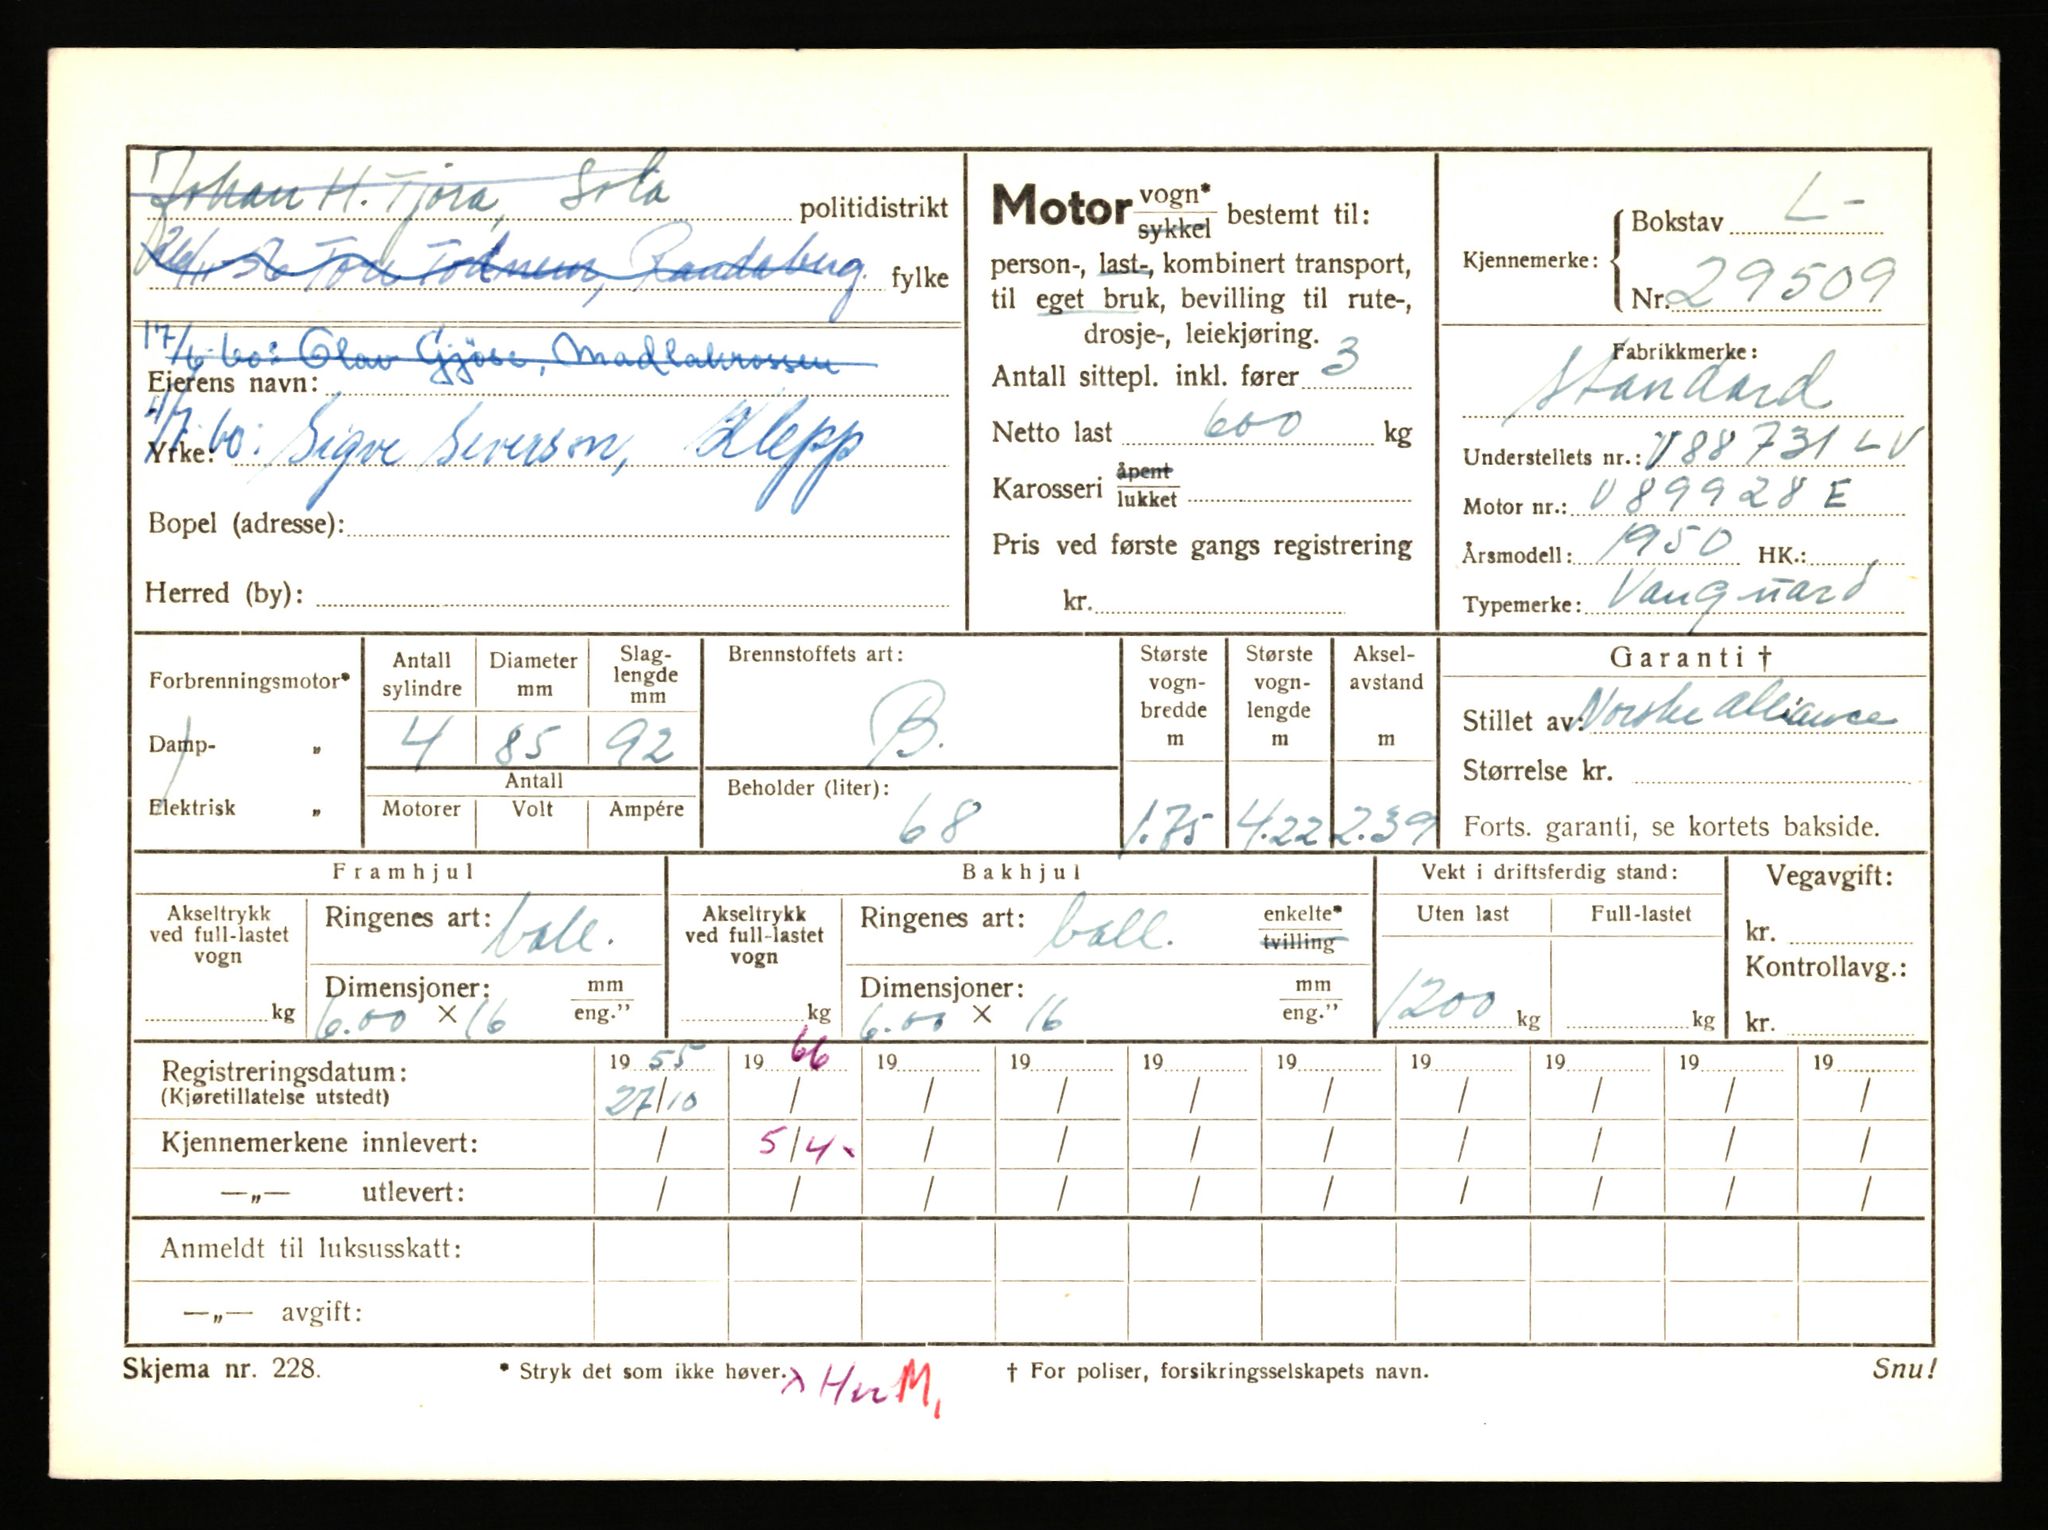 Johan H. Tjora, Sola politidistrikt
Tore Todnem, Randaberg. fylke
17/6-60: Olav Gjöse, Madlakrossen
Eierens navn:
4/7-60: Sigve Severson, Klepp
Yrke:
Bopel (adresse):
Herred (by):
Motor vogn* sykkel bestemt til:
person-, last-, kombinert transport,
til eget bruk, bevilling til rute-,
drosje-, leiekjøring.
Antall sittepl. inkl. fører 3
Netto last 600 kg
Karosseri åpent lukket
Pris ved første gangs registrering
kr.
Kjennemerke: Bokstav L-
Nr. 29509
Fabrikkmerke:
Standard
Understellets nr.: V88731LV
Motor nr.: V89928E
Årsmodell: 1950 HK.:
Typemerke: Vanguard
Forbrenningsmotor*
Damp- „
Elektrisk „
Antall sylindre Diameter mm Slaglengde mm
4 85 92
Antall
Motorer Volt Ampére
Brennstoffets art:
B.
Beholder (liter):
68
Største vognbredde m Største vognlengde m Akselavstand m
1.75 4.22 2.39
Garanti †
Stillet av: Norske Alliance
Størrelse kr.
Forts. garanti, se kortets bakside.
Framhjul
Akseltrykk ved full-lastet vogn
kg
Ringenes art: ball.
Dimensjoner: mm eng."
6.00 × 16
Bakhjul
Akseltrykk ved full-lastet vogn
kg
Ringenes art: ball. enkelte* tvilling
Dimensjoner: mm eng."
6.00 × 16
Vekt i driftsferdig stand:
Uten last Full-lastet
1200 kg kg
Vegavgift:
kr.
Kontrollavg.:
kr.
Registreringsdatum: 19 55 19 66 19 19 19 19 19 19 19 19
(Kjøretillatelse utstedt) 27/10 / / / / / / / / /
Kjennemerkene innlevert: / 5/4- / / / / / / / /
—„— utlevert: / / / / / / / / / /
Anmeldt til luksusskatt:
—„— avgift:
Skjema nr. 228. * Stryk det som ikke høver. † For poliser, forsikringsselskapets navn. Snu!